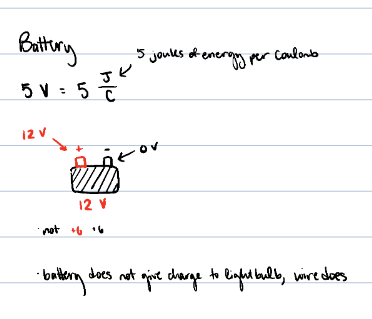 Battery
5 joules of energy per coulomb
5 V = 5 J/C
12 V
+ -
0 V
12 V
· not +6 -6
· battery does not give charge to lightbulb, wire does